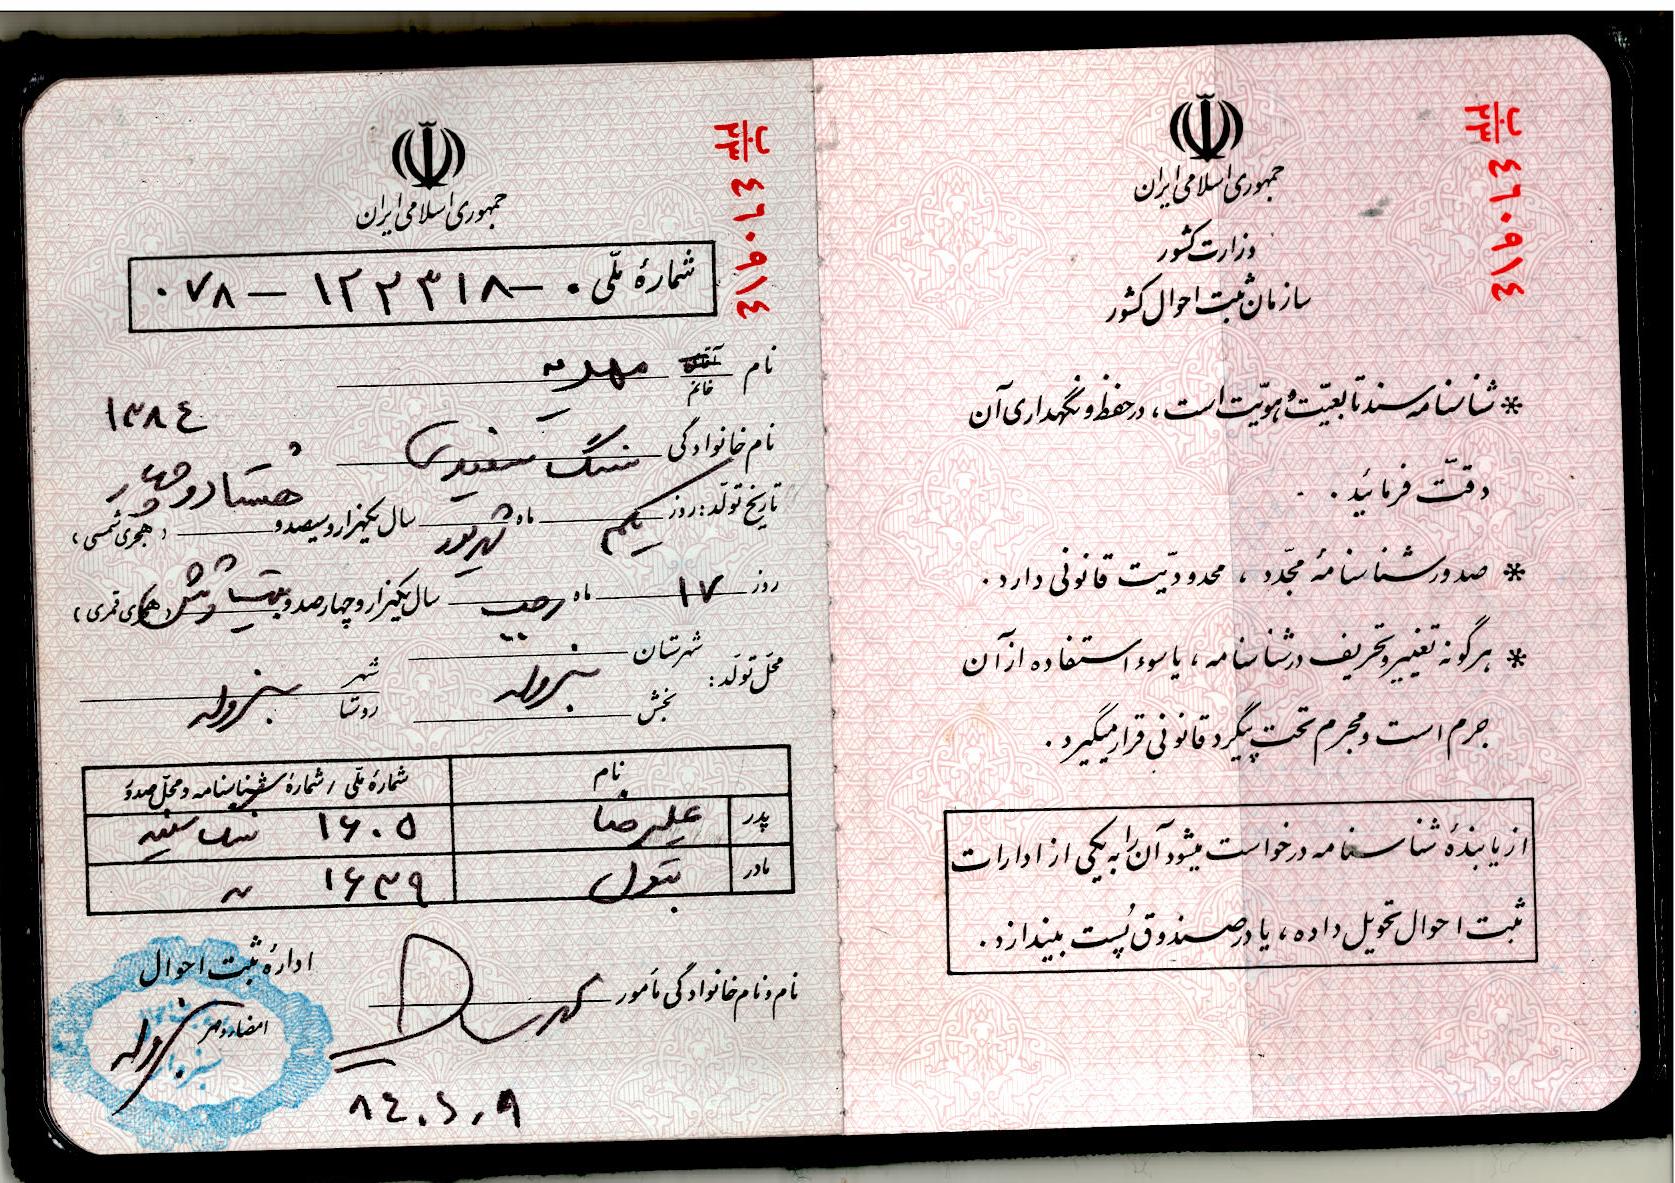 ب
۲۳ ۴۶۰۹۱۴
جمهوری اسلامی ایران
وزارت کشور
سازمان ثبت احوال کشور
* شناسنامه سند تابعیّت و هویّت است، در حفظ و نگهداری آن
دقّت فرمائید.
* صدور شناسنامهٔ مجدّد، محدودیّت قانونی دارد.
* هرگونه تغییر و تحریف در شناسنامه، یا سوء استفاده از آن
جرم است و مجرم تحت پیگرد قانونی قرار میگیرد.
از یابندهٔ شناسنامه درخواست میشود آن را به یکی از ادارات
ثبت احوال تحویل داده، یا در صندوق پُست بیندازد.
ب
۲۳ ۴۶۰۹۱۴
جمهوری اسلامی ایران
شمارهٔ ملّی ۰۷۸ – ۱۲۲۳۱۸ – ۰
نام آقای خانم مهدیه
۱۳۸۴
نام خانوادگی سنگ سفیدی
تاریخ تولّد: روز یکم ماه شهریور سال یکهزار و سیصد و هشتاد و چهار (هجری شمسی)
روز ۱۷ ماه رجب سال یکهزار و چهارصد و بیست و شش (هجری قمری)
محلّ تولّد: شهرستان سبزوار شهر سبزوار
بخش روستا
نام شمارهٔ ملّی / شمارهٔ شناسنامه و محل صدور
پدر علیرضا ۱۶۰۵ سنگ سفید
مادر بتول ۱۶۳۹ "
نام و نام خانوادگی مأمور
ادارهٔ ثبت احوال
امضاء و مهر سبزوار
۸۴.۶.۹